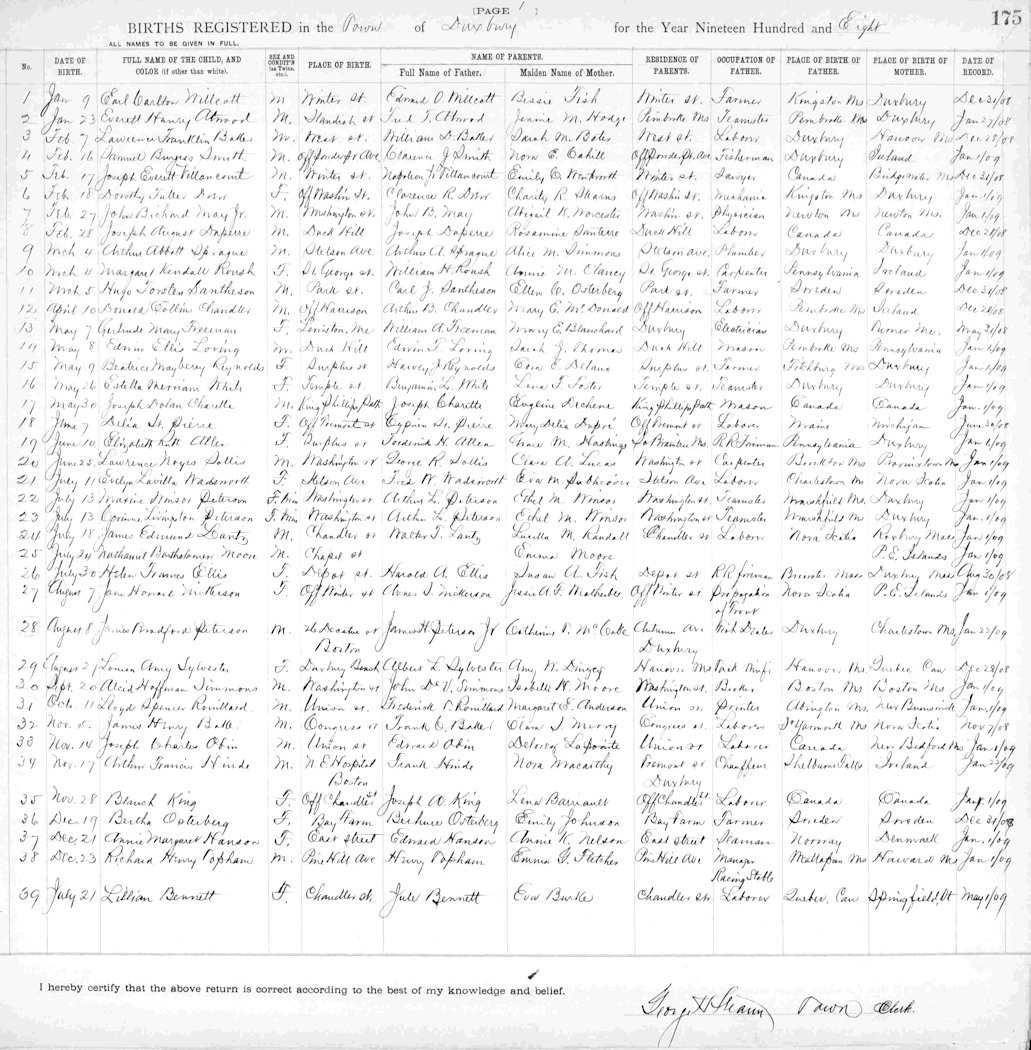 [PAGE 1 ]
175
BIRTHS REGISTERED in the Town of Duxbury for the Year Nineteen Hundred and Eight
ALL NAMES TO BE GIVEN IN FULL.
No. DATE OF BIRTH. FULL NAME OF THE CHILD, AND COLOR (if other than white). SEX AND CONDIT'N (as Twins, etc.). PLACE OF BIRTH. NAME OF PARENTS. Full Name of Father. Maiden Name of Mother. RESIDENCE OF PARENTS. OCCUPATION OF FATHER. PLACE OF BIRTH OF FATHER. PLACE OF BIRTH OF MOTHER. DATE OF RECORD.
1 Jan 9 Earl Carlton Willcott M Winter St. Edward O. Willcott Bessie Fish Winter St. Farmer Kingston Ms Duxbury Dec 31/08
2 Jan 23 Everett Henry Atwood M. Standish st Fred T. Atwood Jennie M. Hodge Pembroke Ms Teamster Pembroke Ms Duxbury Jan 27/08
3 Feb. 7 Lawrence Franklin Baker M. West St. William D. Baker Sarah M. Bates West St. Labor Duxbury Hanover Ms Dec 28/08
4 Feb. 16 Samuel Burgess Smith M. Clarence J. Smith Nora E. Cahill Fisherman Duxbury Ireland Jan 1/09
5 Feb. 17 Joseph Everett Villancourt M. Winter st. Napoleon J. Villancourt Emily E. Wentworth Winter st. Sawyer Canada Bridgewater Ms Dec 31/08
6 Feb 18 Dorothy Fuller Dorr F. Off Washin St. Clarence R. Dorr Charity R. Stearns Off Washin st. Mechanic Kingston Ms Duxbury Jan. 1/09
7 Feb 27 John Richard May Jr. M. Washington st. John B. May Abigail K. Worcester Washin st. Physician Newton Ms Newton Ms. Jan 1/09
8 Feb. 28 Joseph August Duperre M. Duck Hill Joseph Duperre Rosamine Santerre Duck Hill Labor Canada Canada Dec 28/08
9 Mch 4 Arthur Abbott Sprague M. Stetson Ave Arthur A. Sprague Alice M. Simmons Stetson Ave. Plumber Duxbury Duxbury Jan 1/09
10 Mch 11 Margaret Kendall Roush F. St. George st. William H. Roush Annie M. Clancy St. George st. Carpenter Pennsylvania Ireland Jan 1/09
11 Mch 5 Hugo Torsten Santheson M. Park st. Carl J. Santheson Ellen C. Osterberg Park st. Farmer Sweden Sweden Dec 31/08
12 April 10 Donald Collin Chandler M. Off Harrison Arthur B. Chandler Mary E. McDonald Off Harrison Labor Pembroke Ms Ireland Dec 28/08
13 May 7 Gertrude Mary Freeman F. Lewiston, Me William A. Freeman Mary E. Blanchard Duxbury Electician Duxbury Turner Me. May 31/08
14 May 8 Edwin Ellis Loring M. Duck Hill Edwin T. Loring Sarah J. Thomas Duck Hill Mason Pembroke Ms Pennsylvania Jan 1/09
15 May 9 Beatrice Mayberry Reynolds F. Surplus st Harvey J. Reynolds Cora E. Delano Surplus st. Farmer Fitchburg Ms Duxbury Jan 1/09
16 May 16 Estella Merriam White F. Temple st. Benjamin L. White Lena F. Foster Temple st. Teamster Duxbury Duxbury Jan 1/09
17 May 30 Joseph Dolan Charette M. King Phillips Path Joseph Charette Eugeine Dechene King Phillips Path Mason Canada Canada Jan. 1/09
18 June 7 Delia St. Pierre F. Off Tremont st. Cyprien St. Pierre Mary Delia Dupri Off Tremont st Laborer Maine Michigan June 30/08
19 June 10 Elizabeth Kitt Allen F. Surplus st Frederick H. Allen Grace M. Hastings So Braintree Ms. R.R. Fireman Pennsylvania Duxbury Jan 1/09
20 June 25 Lawrence Noyes Sollis M. Washington st George R. Sollis Clara A. Lucas Washington st Carpenter Brockton Ms Provincetown Ms Jan 1/09
21 July 11 Evelyn Lavilla Wadsworth F. Stetson Ave Fred W. Wadsworth Eva M. Stetson Ave Laborer Charlestown Ms Nova Scotia Jan 1/09
22 July 13 Maxine Winsor Peterson F. Twin Washington st Arthur L. Peterson Ethel M. Winsor Washington st. Teamster Marshfield Ms. Duxbury Jan 1/09
23 July 13 Corinne Livingston Peterson F. Twin Washington st Arthur L. Peterson Ethel M. Winsor Washington st Teamster Marshfield Ms Duxbury Jan 1/09
24 July 18 James Edmund Lantz M. Chandler st Walter T. Lantz Lucella M. Randall Chandler st Labor Nova Scotia Roxbury Mass Jan 1/09
25 July 24 Nathaniel Bartholomew Moore M. Chapel st Emma Moore P.E. Islands Jan 1/09
26 July 30 Helen Frances Ellis F. Depot st. Harold A. Ellis Susan A. Fish Depot st R.R. fireman Brewster Mass Duxbury Mass Aug 30/08
27 August 7 Jane Howard Nickerson F. Off Winter st Abner S. Nickerson Jessie A. F. Off Winter st Propagation of Trout Nova Scotia P.E. Islands Jan 1/09
28 August 8 James Bradford Peterson M. 26 Decatur st Boston James H. Peterson Jr Catherine P. McCabe Autumn Ave Duxbury Fish Dealer Duxbury Charlestown Ms Jan 22/09
29 August 27 Louisa Amy Sylvester F. Duxbury Beach Albert L. Sylvester Amy W. Hanover Ms Tack Manf. Hanover Ms. Quebec Can Dec 28/08
30 Sept. 20 Alcid Hoffman Simmons M. Washington st John De V. Simmons Isabelle H. Moore Washington st. Broker Boston Ms Boston Ms Jan 1/09
31 Octo. 11 Lloyd Spencer Rouillard M. Union st. Frederick P. Rouillard Margaret E. Anderson Union st. Printer Abington Ms. New Brunswick Jan 1/09
32 Nov. 5. James Henry Baker M. Congress st Frank E. Baker Clara I. Merry Congress st. Laborer So Yarmouth Ms Nova Scotia Nov 7/08
33 Nov. 14 Joseph Charles Obin M. Union st Edward Obin Delorey Lapointe Union st Laborer Canada New Bedford Ms Jan 1/09
34 Nov. 17 Arthur Francis Hinde M. N.E. Hospital Boston Frank Hinde Nora Tremont st Duxbury Chauffeur Shelburne Falls Ireland Jan 22/09
35 Nov. 28 Blanch King F. Off Chandler St Joseph A. King Lena Barriault Off Chandler St. Laborer Canada Canada Jan. 1/09
36 Dec. 19 Bertha Osterberg F. Bay Farm Osterberg Emily Johnson Bay Farm Farmer Sweden Sweden Dec 31/08
37 Dec. 21 Annie Margaret Hanson F. East street Edward Hanson Annie K. Nelson East street Seaman Norway Denmark Jan. 1/09
38 Dec. 23 Richard Henry Popham M. Pine Hill Ave Henry Popham Emma G. Fletcher Pine Hill Ave Manager Racing Stable Mattapan Ms Harvard Ms Jan 1/09
39 July 21 Lillian Bennett F. Chandler st. Jule Bennett Eva Burke Chandler st. Laborer Quebec, Can Springfield, Vt May 1/09
I hereby certify that the above return is correct according to the best of my knowledge and belief.
George H. Stearns Town Clerk.